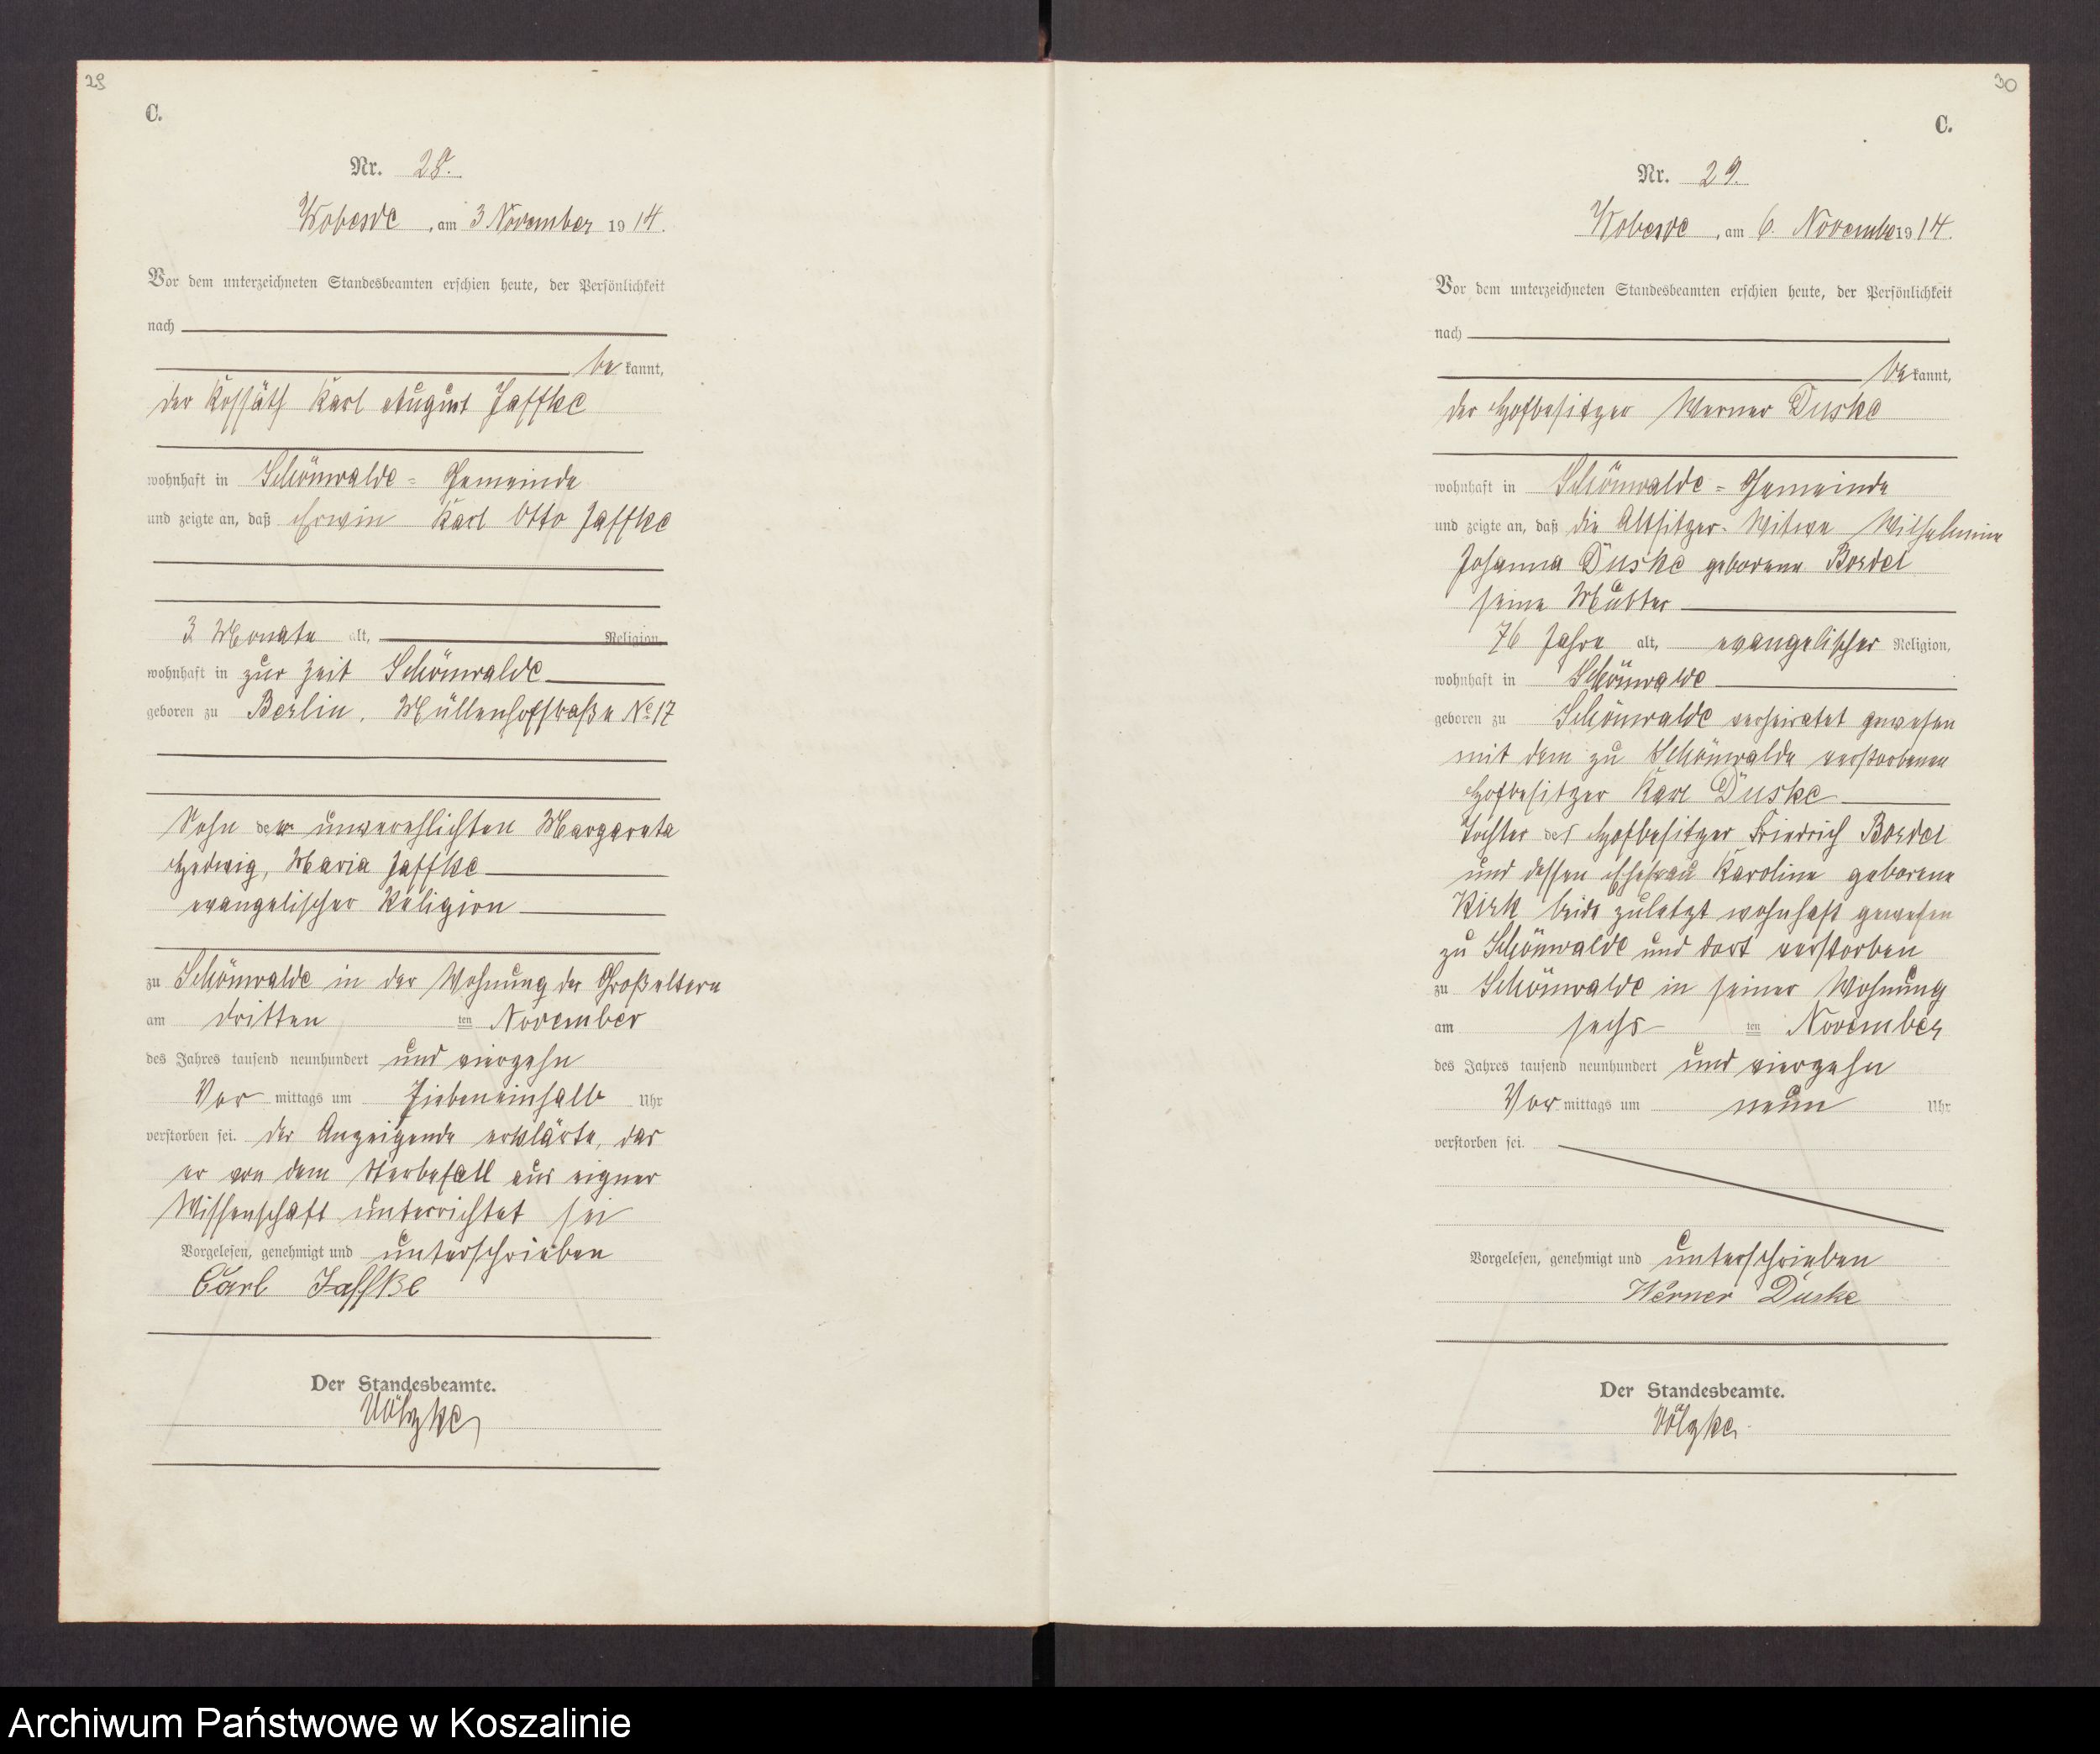 29
C.
Nr. 28.
Wobesde, am 3 November 1914.
Vor dem unterzeichneten Standesbeamten erschien heute, der Persönlichkeit
nach
be kannt,
der Kossäth Karl August Jaffke
wohnhaft in Schönwalde = Gemeinde
und zeigte an, daß Erwin Karl Otto Jaffke
3 Monate alt, Religion,
wohnhaft in zur Zeit Schönwalde
geboren zu Berlin, Müllenhofstraße No 17
Sohn der unverehlichten Margareta
Hedwig, Maria Jaffke
evangelischer Religion
zu Schönwalde in der Wohnung der Großeltern
am dritten ten November
des Jahres tausend neunhundert und vierzehn
Vor mittags um Siebeneinhalb Uhr
verstorben sei. Der Anzeigende erklärte, das
er von dem Sterbefall aus eigner
Wissenschaft unterrichtet sei
Vorgelesen, genehmigt und unterschrieben
Carl Jaffke
Der Standesbeamte.
Völzke
30
C.
Nr. 29.
Wobesde, am 6. November 1914.
Vor dem unterzeichneten Standesbeamten erschien heute, der Persönlichkeit
nach
be kannt,
der Hofbesitzer Werner Duske
wohnhaft in Schönwalde = Gemeinde
und zeigte an, daß die Altsitzer-Witwe Wilhelmine
Johanna Duske geborene Bordel
seine Mutter
76 Jahre alt, evangelischer Religion,
wohnhaft in Schönwalde
geboren zu Schönwalde verheiratet gewesen
mit dem zu Schönwalde verstorbenen
Hofbesitzer Karl Duske
Tochter des Hofbesitzer Friedrich Bordel
und dessen Ehefrau Karoline geborene
Kirk beide zuletzt wohnhaft gewesen
zu Schönwalde und dort verstorben
zu Schönwalde in seiner Wohnung
am sechs ten November
des Jahres tausend neunhundert und vierzehn
Vor mittags um neun Uhr
verstorben sei.
Vorgelesen, genehmigt und unterschrieben
Werner Duske
Der Standesbeamte.
Völzke
Archiwum Państwowe w Koszalinie